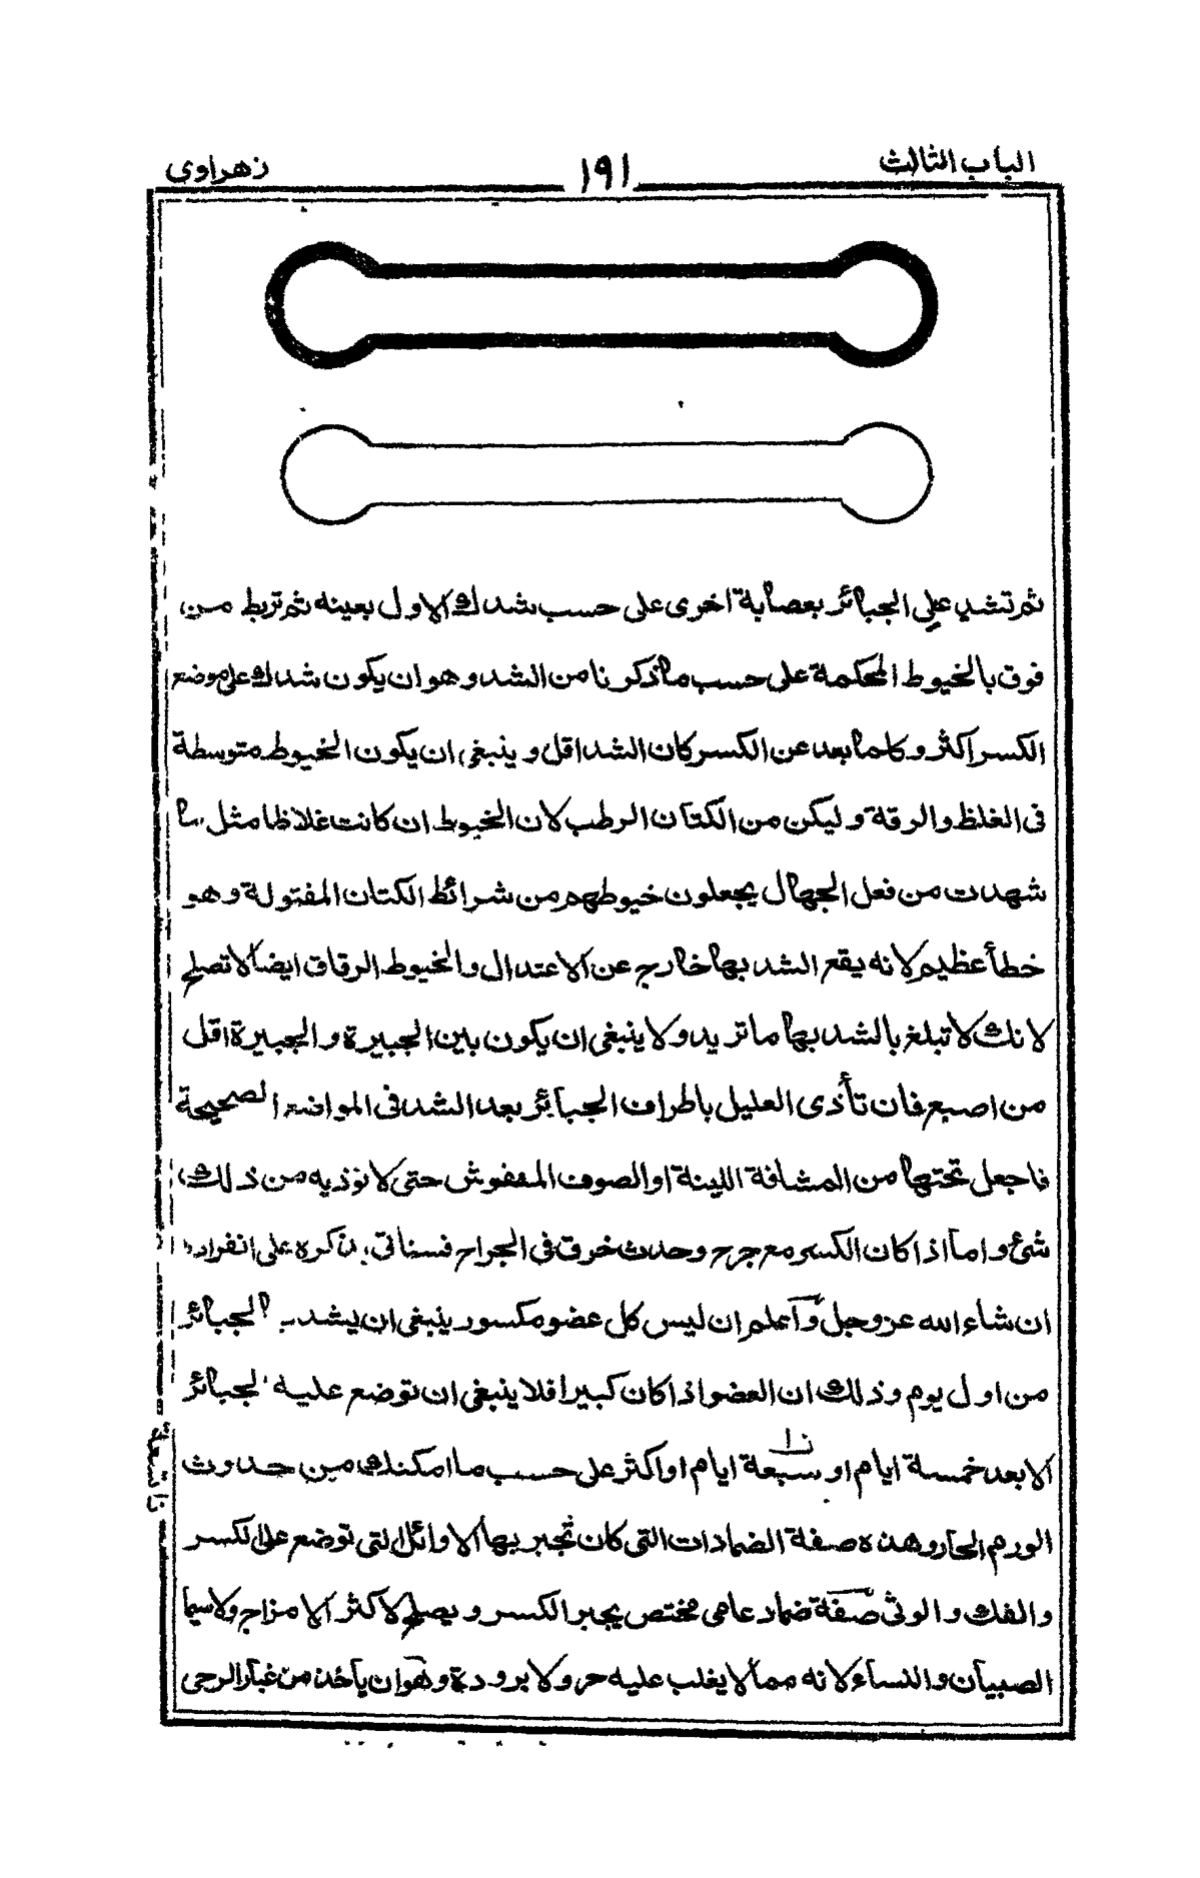 الباب الثالث
١٩١
زهراوى
ثم تشد على الجبائر بعصابة اخرى على حسب شدك الاول بعينه ثم تربط من
فوق بالخيوط المحكمة على حسب ما ذكرنا من الشد وهو ان يكون شدك على موضع
الكسر اكثر وكلما بعد عن الكسر كان الشد اقل وينبغى ان يكون الخيوط متوسطة
فى الغلظ والرقة وليكن من الكتان الرطب لان الخيوط ان كانت غلاظا مثل ما
شهدت من فعل الجهال يجعلون خيوطهم من شرائط الكتان المفتولة وهو
خطأ عظيم لانه يقع الشد بها خارج عن الاعتدال والخيوط الرقاق ايضا لا تصلح
لانك لا تبلغ بالشد بها ما تريد ولا ينبغى ان يكون بين الجبيرة والجبيرة اقل
من اصبع فان تأذى العليل باطراف الجبائر بعد الشد فى المواضع الصحيحة
فاجعل تحتها من المشاقة اللينة او الصوف المنفوش حتى لا نوذيه من ذلك
شئ واما اذا كان الكسر مع جرح وحدث خرق فى الجراح فسناتى بذكره على انفراده
ان شاء الله عز وجل واعلم ان ليس كل عضو مكسور ينبغى ان يشد بالجبائر
من اول يوم وذلك ان العضو اذا كان كبيرا فلا ينبغى ان توضع عليه الجبائر
الا بعد خمسة ايام او سبعة ايام او اكثر على حسب ما امكنك من حدوث
الورم الحار وهذه صفة الضمادات التى كان تجبر بها الاوائل التى توضع على الكسر
والفك والوثى صفة ضماد عامى مختص يجبر الكسر ويصلح لاكثر الامزاج ولا سيما
الصبيان والنساء لانه مما لا يغلب عليه حر ولا برودة وهو ان ياخذ من غبار الرحى
ن ا
ن ا تسعة